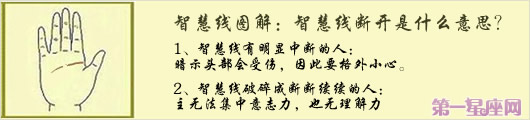 智慧线图解：智慧线断开是什么意思？
1、智慧线有明显中断的人：
暗示头部会受伤，因此要格外小心。
2、智慧线破碎成断断续续的人：
主无法集中意志力，也无理解力
第一星座网